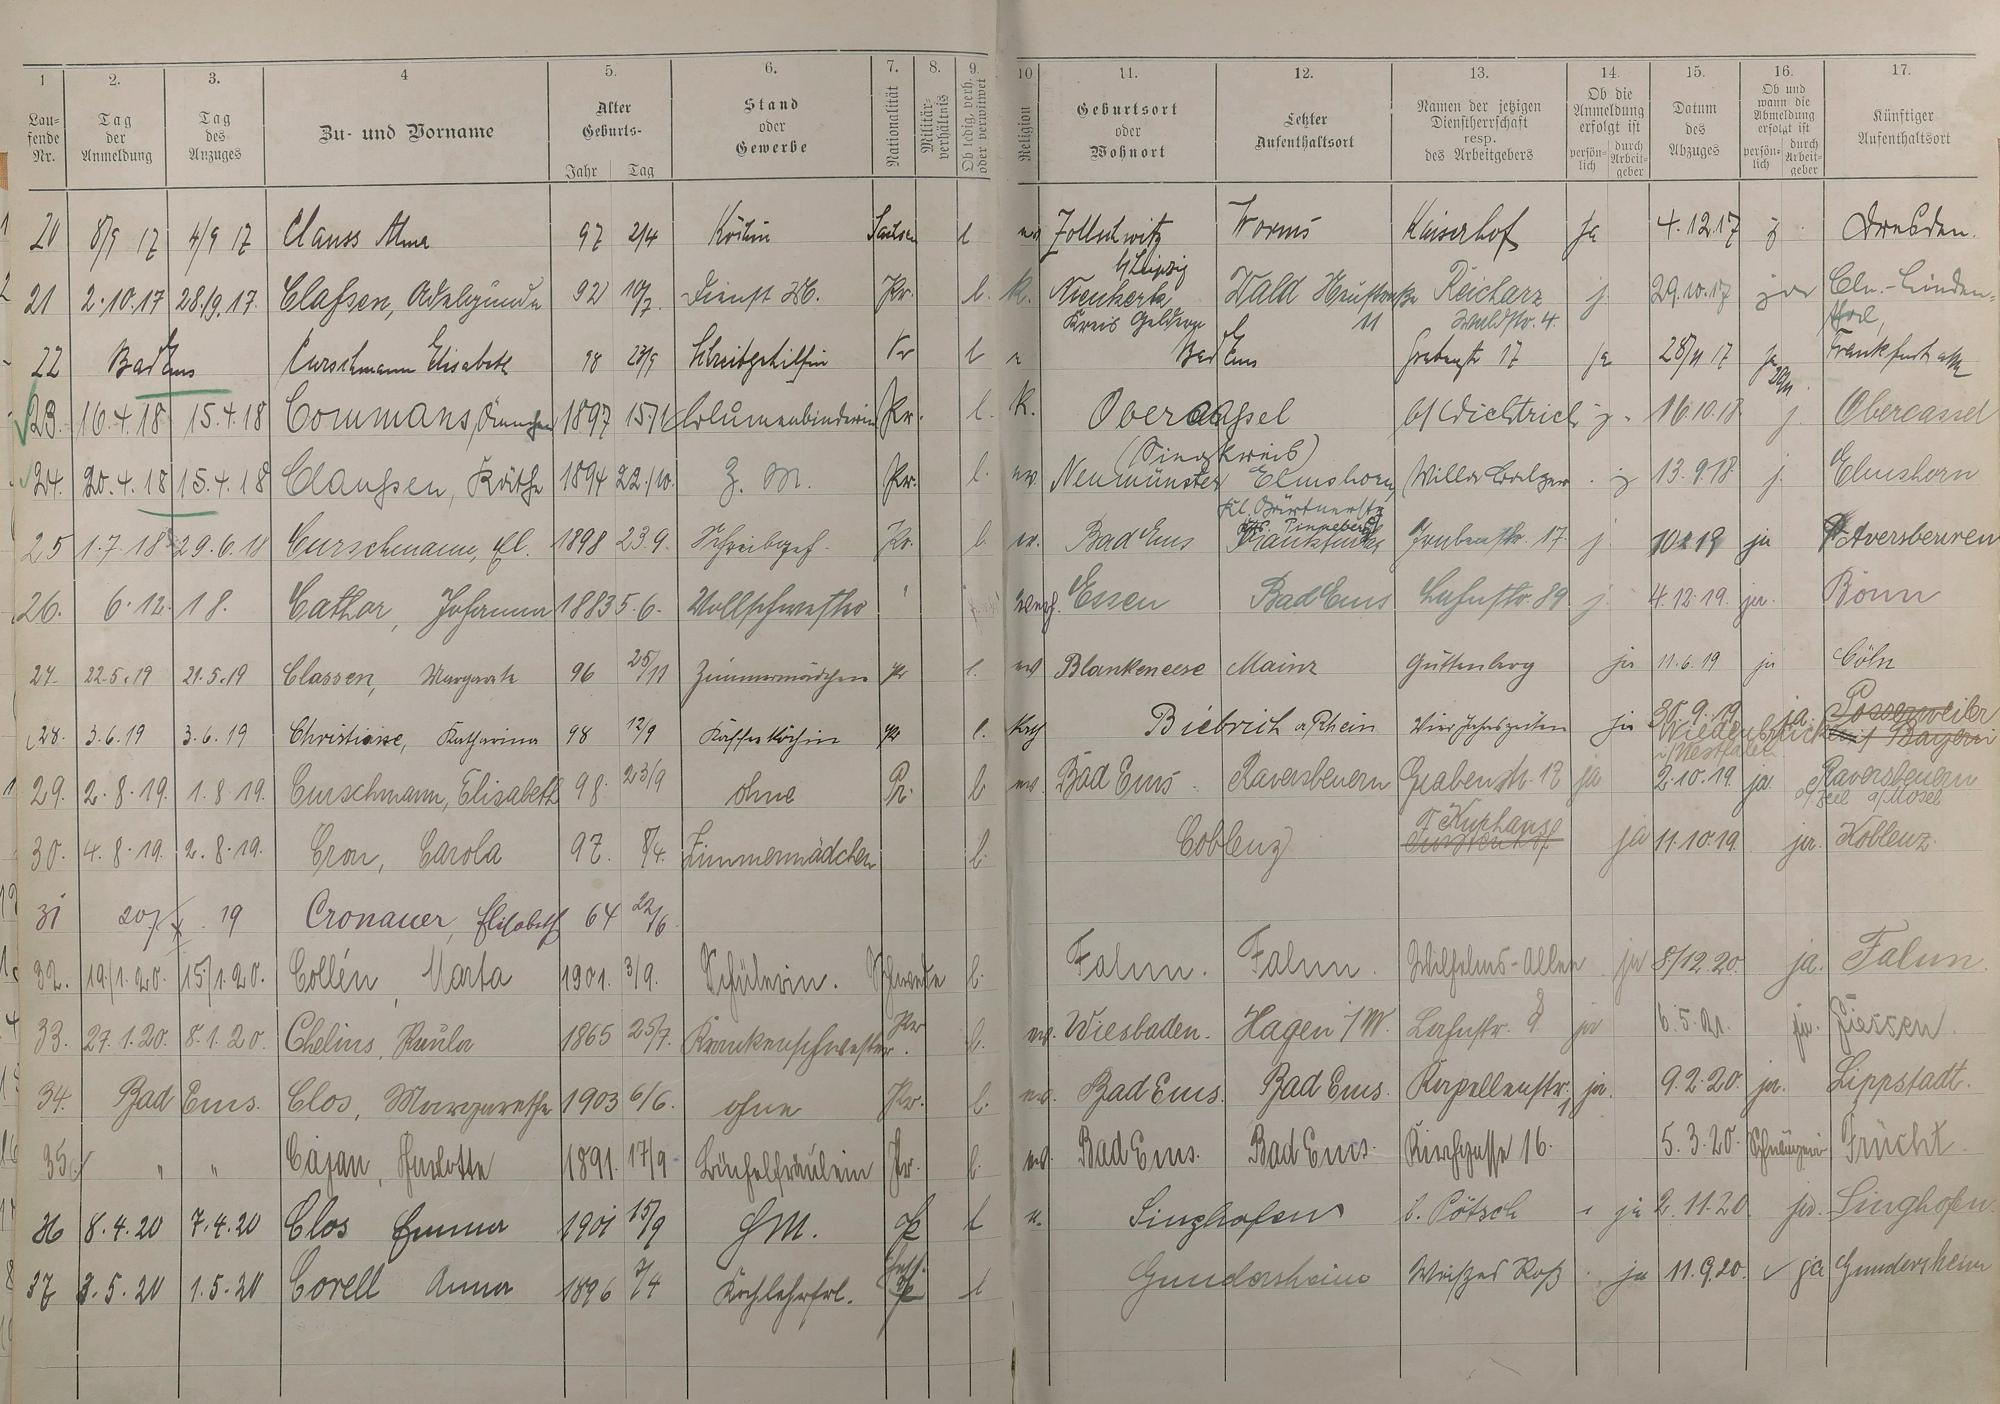 1 2. 3. 4 5. 6. 7. 8. 9. 10 11. 12. 13. 14. 15. 16. 17.
Lau-fende Nr. Tag der Anmeldung Tag des Anzuges Zu- und Vorname Alter Geburts- Jahr Tag Stand oder Gewerbe Nationalität Militär-verhältnis Ob ledig, verh. oder verwitwet Religion Geburtsort oder Wohnort Letzter Aufenthaltsort Namen der jetzigen Dienstherrschaft resp. des Arbeitgebers Ob die Anmeldung erfolgt ist persön-lich durch Arbeit-geber Datum des Abzuges Ob und wann die Abmeldung erfolgt ist persön-lich durch Arbeit-geber Künftiger Aufenthaltsort
20 8/9 17 4/9 17 Clauss Alma 97 2/4 Köchin Sachsen l ev Zollschwitz b/Leipzig Worms Kaiserhof ja 4.12.17 j. Dresden.
21 2.10.17 28.9.17. Claßen, Adelgunde 92 10/7. Dienst M. Pr. l. k. Kreis Geldern Wald 11 Reicharz Waldstr. 4. j. 29.10.17 Cln.-Linden-
22 Bad Ems Curschmann Elisabeth 98 23/9 Schreibgehilfin Pr l e Bad Ems Grabenstr 17 ja 28/11 17 ja Frankfurt a/M
23. 16.4.18 15.4.18 Commans, Ännchen 1897 15/1 Blumenbinderin Pr. l. k. Obercassel (Siegkreis) b/ Dietrich j. 16.10.18 j. Obercassel
24. 20.4.18 15.4.18 Claußen, Käthe 1894 22./10. Z. M. Pr. l. ev Neumünster Elmshorn, Kl. Gärtnerstr Krs. Pinneberg Villa Balzer j 13.9.18 j. Elmshorn
25 1.7.18 29.6.18 Curschmann, El. 1898 23.9. Schreibgeh. Pr. l. ev. Bad Ems Frankfurt Grabenstr. 17 j. ja
26. 6.12.18. Cathor, Johanna 1883 5.6. Vollschwester " Essen Bad Ems Lahnstr. 89 j. 4.12.19. ja. Bonn
27. 22.5.19 21.5.19 Classen, Margarete 96 25/11 Zimmermädchen Pr l. ev Blankenese Mainz Guttenberg ja 11.6.19 ja Cöln
28. 3.6.19 3.6.19 Christiane, Katharina 98 12/9 Kaffeeköchin Pr l. Kath Biebrich a/Rhein Vierjahrszeiten ja 30.9.19. ja. Wiedenbrück i/Westfalen
29. 2.8.19. 1.8.19. Curschmann, Elisabeth 98. 23/9 ohne Pr. l. ev. Bad Ems. Raversbeuern Grabenstr. 17 ja 2.10.19. ja. Raversbeuern b/Zell a/Mosel
30. 4.8.19. 2.8.19. Cron, Carola 97. 8/4. Zimmermädchen l. Coblenz Kurhause ja 11.10.19. ja. Koblenz.
31 20/ 19 Cronauer, Elisabeth 64 22/6
32. 19/1.20. 15/1.20. Collén, Marta 1901. 3/9. Schülerin. Schwede l. Falun. Falun. Wilhelms-Allee ja 8/12.20. ja. Falun.
33. 27.1.20. 8.1.20. Chelius, Paula 1865 25/7. Krankenschwester. Pr. l. ev. Wiesbaden. Hagen i/W. Lahnstr. ja 6.5. ja.
34. Bad Ems. Clos, Margarethe 1903 6/6. ohne Pr. l. ev. Bad Ems. Bad Ems. Kapellenstr. ja. 9.2.20. ja. Lippstadt.
35. " " Cajan, Charlotte 1891. 17/9. Büfelfräulein Pr. l. ev. Bad Ems. Bad Ems. Kirchgasse 16. 5.3.20. Frücht.
36 8.4.20 7.4.20 Clos Emma 1901 15/9 HM. l e. Singhofen b. Pötsch ja 2.11.20 ja. Singhofen.
37 3.5.20 1.5.20 Corell Anna 1896 7/4 Kochlehrfrl. l Gundersheim Weißes Roß ja 11.9.20. ja Gundersheim